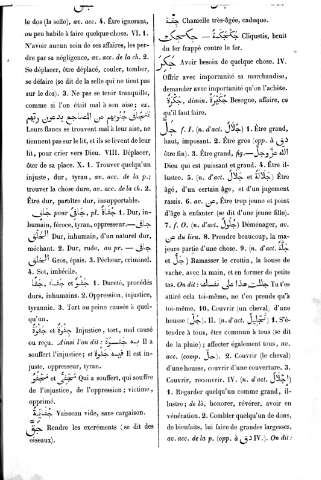 le dos (la selle), av. acc. 4. Être ignorant,
ou peu habile à faire quelque chose. VI. 1.
N'avoir aucun soin de ses affaires, les per-
dre par sa négligence, av. acc. de la ch. 2.
Se déplacer, être déplacé, couler, tomber,
se défaire (se dit de la selle qui ne tient pas
sur le dos). 3. Ne pas se tenir tranquille,
comme si l'on était mal à son aise; ex.
تتجافى جنوبهم عن المضاجع يدعون ربهم
Leurs flancs se trouvent mal à leur aise, ne
tiennent pas sur le lit, et ils se lèvent de leur
lit, pour crier vers Dieu. VIII. Déplacer,
ôter de sa place. X. 1. Trouver quelqu'un
injuste, dur, tyran, av. acc. de la p.;
trouver la chose dure, av. acc. de la ch. 2.
Être dur, paraître dur, insupportable.
جاف pour جافى, pl. جفاة 1. Dur, in-
humain, féroce, tyran, oppresseur.—جافى
الخلق Dur, inhumain, d'un naturel dur,
méchant. 2. Dur, rude, au pr. — جافى
الخلق Gros, épais. 3. Pécheur, criminel.
4. Sot, imbécile.
جفاء, جفا 1. Dureté, procédés
durs, inhumains. 2. Oppression, injustice,
tyrannie. 3. Tort ou peine causés à quel-
qu'un.
جفوة et جفوة Injustice, tort, mal causé
ou reçu. Ainsi l'on dit : به جفوة Il a
souffert l'injustice; et فيه جفوة Il est in-
juste, oppresseur, tyran.
et مجفو Qui a souffert, qui souffre
de l'injustice, de l'oppression; victime,
opprimé.
جفاية Vaisseau vide, sans cargaison.
جق Rendre les excréments (se dit des
oiseaux).
جقة Chamelle très-âgée, caduque.
جكجكة — جكجك Cliquetis, bruit
du fer frappé contre le fer.
جكر Avoir besoin de quelque chose. IV.
Offrir avec importunité sa marchandise,
demander avec importunité qu'on l'achète.
جكرة, dimin. جكيرة Besogne, affaire, ce
qu'il faut faire.
جل f. I. (n. d'act. جلال) 1. Être grand,
haut, imposant. 2. Être gros (opp. à دق
être fin). 3. Être grand, الله عز وجل
Dieu qui est puissant et grand. 4. Être il-
lustre. 5. (n. d'act. جلالة et جلال) Être
âgé, d'un certain âge, et d'un jugement
rassis. 6. av. عن, Être trop jeune et point
d'âge à enfanter (se dit d'une jeune fille).
7. f. O. (n. d'act. جلول) Déménager, av.
عن du lieu. 8. Prendre beaucoup, la ma-
jeure partie d'une chose. 9. (n. d'act. جلة
et جل) Ramasser le crottin, la bouse de
vache, avec la main, et en former de petits
tas. On dit : جللت هذا على نفسك Tu t'es
attiré cela toi-même, ne t'en prends qu'à
toi-même. 10. Couvrir (un cheval, d'une
housse جل). II. (n. d'act. تجليل) 1. S'é-
tendre à tous, être commun à tous (se dit
de la pluie); affecter également tous, av.
acc. (comp. جل). 2. Couvrir (le cheval)
d'une housse, couvrir d'une couverture. 3.
Couvrir, recouvrir. IV. (n. d'act. إجلال)
1. Regarder quelqu'un comme grand, il-
lustre; de là, honorer, révérer, avoir en
vénération. 2. Combler quelqu'un de dons,
de bienfaits, lui faire de grandes largesses,
av. acc. de la p. (opp. à دق IV.). On dit :